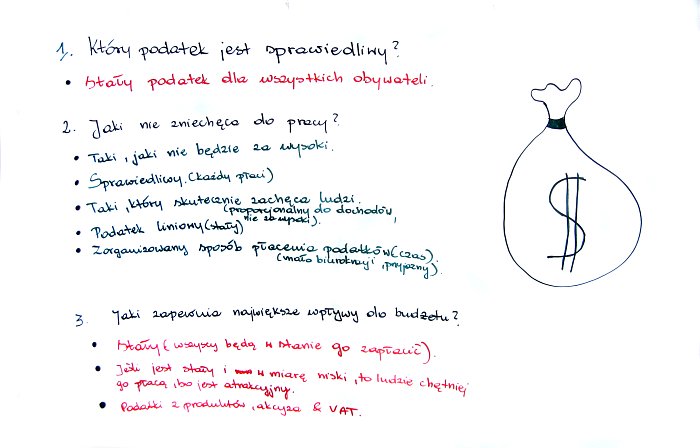 1. Który podatek jest sprawiedliwy?
• Stały podatek dla wszystkich obywateli.
2. Jaki nie zniechęca do pracy?
• Taki, jaki nie będzie za wysoki.
• Sprawiedliwy. (każdy płaci)
• Taki, który skutecznie zachęca ludzi.
(proporcjonalny do dochodów,
• Podatek liniowy (stały) nie za wysoki).
• Zorganizowany sposób płacenia podatków (czas).
(mało biurokracji, przyjazny).
3. Jaki zapewnia największe wpływy do budżetu?
• Stały (wszyscy będą w stanie go zapłacić).
• Jeśli jest stały i w miarę niski, to ludzie chętniej
go płacą, bo jest atrakcyjny.
• Podatki z produktów, akcyza & VAT.
$